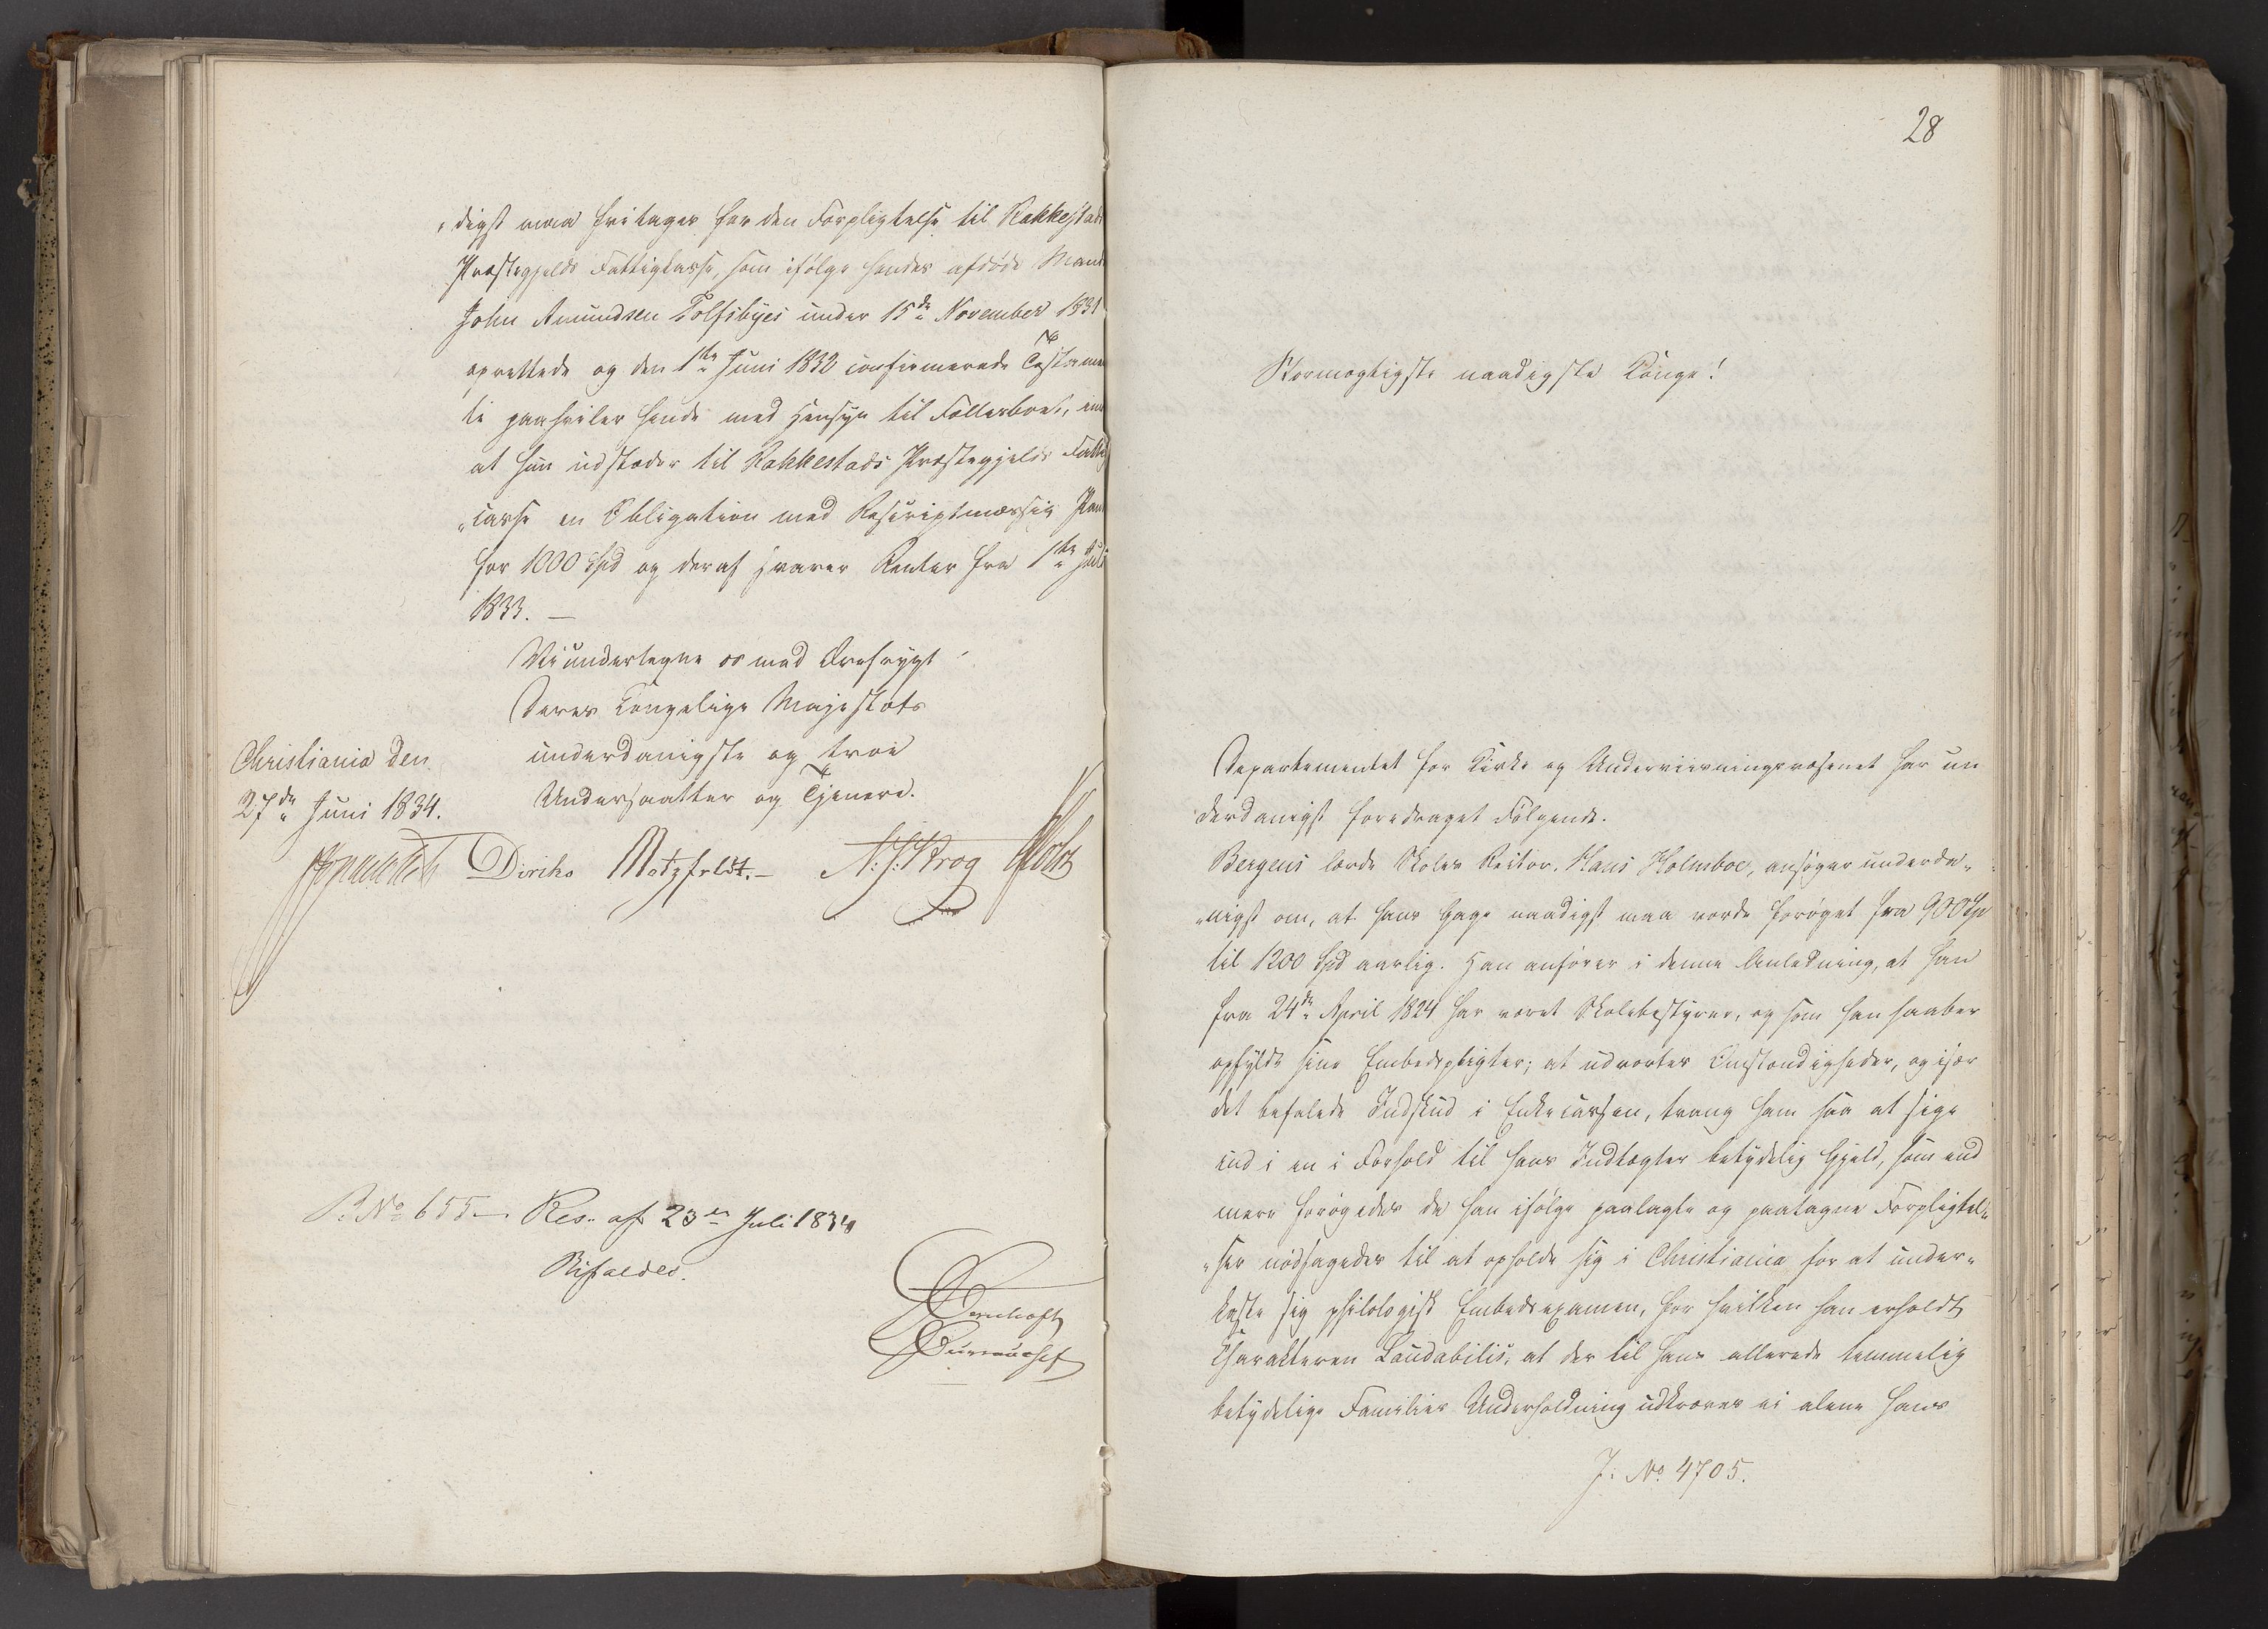 „digst maa fritages for den Forpligtelse til Rakkestads
Præstegjelds Fattigkasse, som ifølge hendes afdøde Mand
John Amundsen Tolfsbyes under 15de November 1831
oprettede og den 1ste Juni 1832 confirmerede Testamen
te paahviler hende med Hensyn til Fællesboet, imod
at hun udsteder til Rakkestads Præstegjelds Fattig
„casse en Obligation med Rescriptmæssig Pant
for 1000 Spd og deraf svarer Renter fra 1ste Juli
1833. —
Vi undertegne os med Ærefrygt
Deres Kongelige Majestæts
underdanigste og troe
Undersaatter og Tjenere.
Christiania den
27de Juni 1834.
Diriks Motzfeldt.- N. J. Krog Holst
P. No 655 - Res. af 23de Juli 1834
Bifaldes.
28
Stormægtigste naadigste Konge!
Departementet for Kirke og Underviisningsvæsenet har un
derdanigst foredraget Følgende.
Bergens lærde Skoles Rector, Hans Holmboe, ansøger underda„
„nigst om, at hans Gage naadigst maa vorde forøget fra 900 Sp
til 1200 Spd aarlig. Han anfører i denne Anledning, at han
fra 24de April 1824 har været Skolebestyrer, og som han haaber
opfyldt sine Embedspligter; at udvortes Omstændigheder, og især
det befalede Indskud i Enkecassen, tvang ham saa at sige
ind i en i Forhold til hans Indtægter betydelig Gjeld, som end
mere forøgedes da han ifølge paalagte og paatagne Forpligtel„
„ser nødsagedes til at opholde sig i Christiania for at under„
kaste sig philologisk Embedsexamen, for hvilken han erholdt
Charakteren Laudabilis; at der til hans allerede temmelig
betydelige Families Underholdning udkræves ei alene hans
J. No 4705.